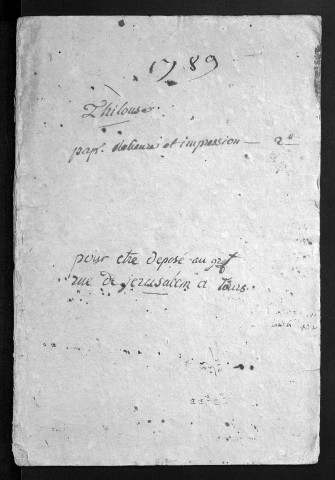 1789
Thilouse
papr. relieure et impression — 2#
pour etre deposé au gref
rue de jerusalem a Tours.